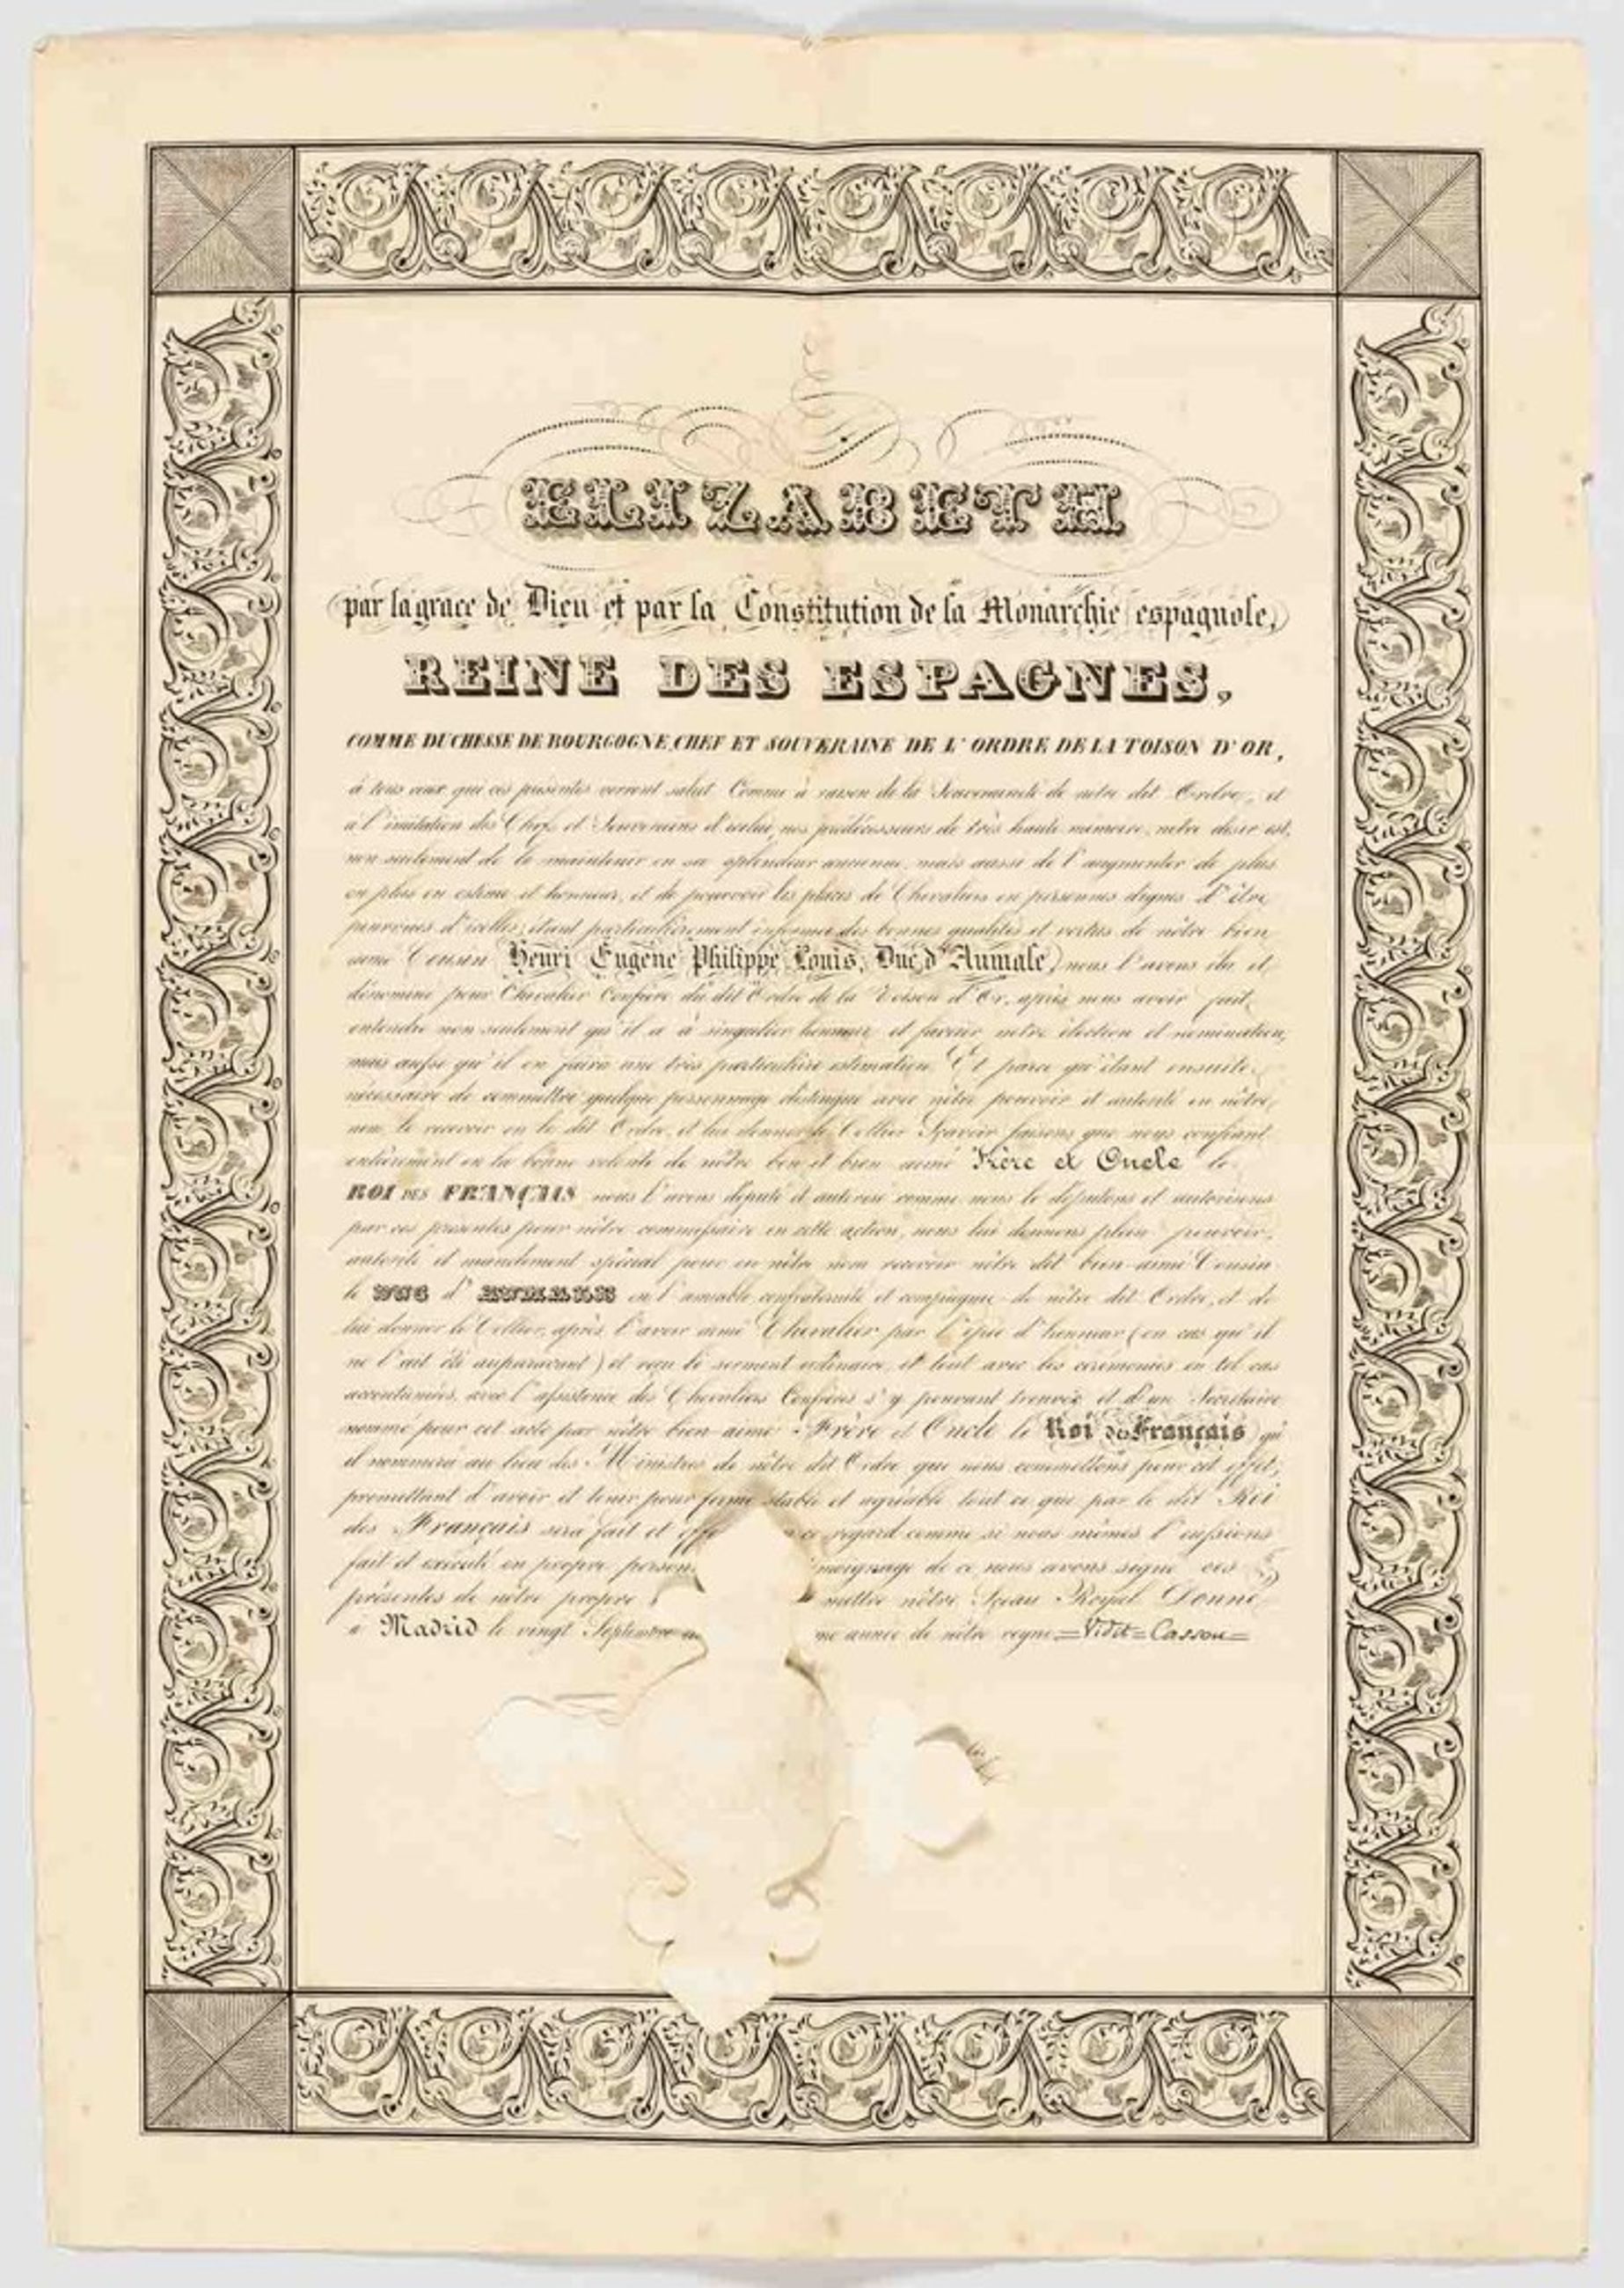 ELIZABETH
par la grace de Dieu et par la Constitution de la Monarchie espagnole,
REINE DES ESPAGNES,
COMME DUCHESSE DE BOURGOGNE, CHEF ET SOUVERAINE DE L'ORDRE DE LA TOISON D'OR,
à tous ceux qui ces présentes verront salut. Comme à raison de la Souveraineté de nôtre dit Ordre, et
à l'imitation des Chefs et Souverains d'icelui, nos prédécesseurs de très haute mémoire, nôtre désir est,
non seulement de le maintenir en sa splendeur ancienne, mais aussi de l'augmenter de plus
en plus en estime et honneur, et de pourvoir les places de Chevaliers en personnes dignes d'être
pourvues d'icelles, étant particulièrement informée des bonnes qualités et vertus de nôtre bien
aimé Cousin Henri Eugène Philippe Louis, Duc d'Aumale, nous l'avons élu et
dénommé pour Chevalier Confrère du dit Ordre de la Toison d'Or, après nous avoir fait
entendre non seulement qu'il a à singulier honneur et faveur nôtre élection et nomination,
mais aussi qu'il en faira une très particulière estimation. Et parce qu'étant ensuite
nécessaire de commettre quelque personnage distingué avec nôtre pouvoir et autorité en nôtre
nom, le recevoir en le dit Ordre, et lui donner le Collier. Sçavoir faisons que nous confiant
entièrement en la bonne volonté de nôtre bon et bien aimé Frère et Oncle le
ROI DES FRANÇAIS nous l'avons député et autorisé comme nous le députons et autorisons
par ces présentes pour nôtre commissaire en cette action, nous lui donnons plein pouvoir,
autorité et mandement spécial pour en nôtre nom recevoir nôtre dit bien-aimé Cousin
le DUC d'AUMALE en l'amiable confraternité et compagnie de nôtre dit Ordre, et de
lui donner le Collier, après l'avoir armé Chevalier par l'épée d'honneur (en cas qu'il
ne l'ait été auparavant) et reçu le serment ordinaire, et tout avec les cérémonies en tel cas
accoutumées, avec l'assistence des Chevaliers Confrères s'y pouvant trouver, et d'un Secrétaire
nommé pour cet acte par nôtre bien-aimé Frère et Oncle le Roi des Français qu'
il nommera au lieu des Ministres de nôtre dit Ordre que nous commettons pour cet effet,
promettant d'avoir et tenir pour ferme stable et agréable tout ce que par le dit Roi
des Français sera fait et ce regard comme si nous mêmes l'eussions
fait et exécuté en propre person moignage de ce nous avons signé ces
présentes de nôtre propre mettre nôtre Sçeau Royal. Donné
à Madrid le vingt Septembre me année de nôtre regne = Vidit = Cassou =